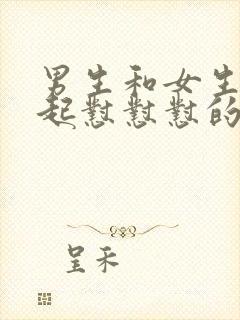 男生和女生
起怼怼怼的
呈禾